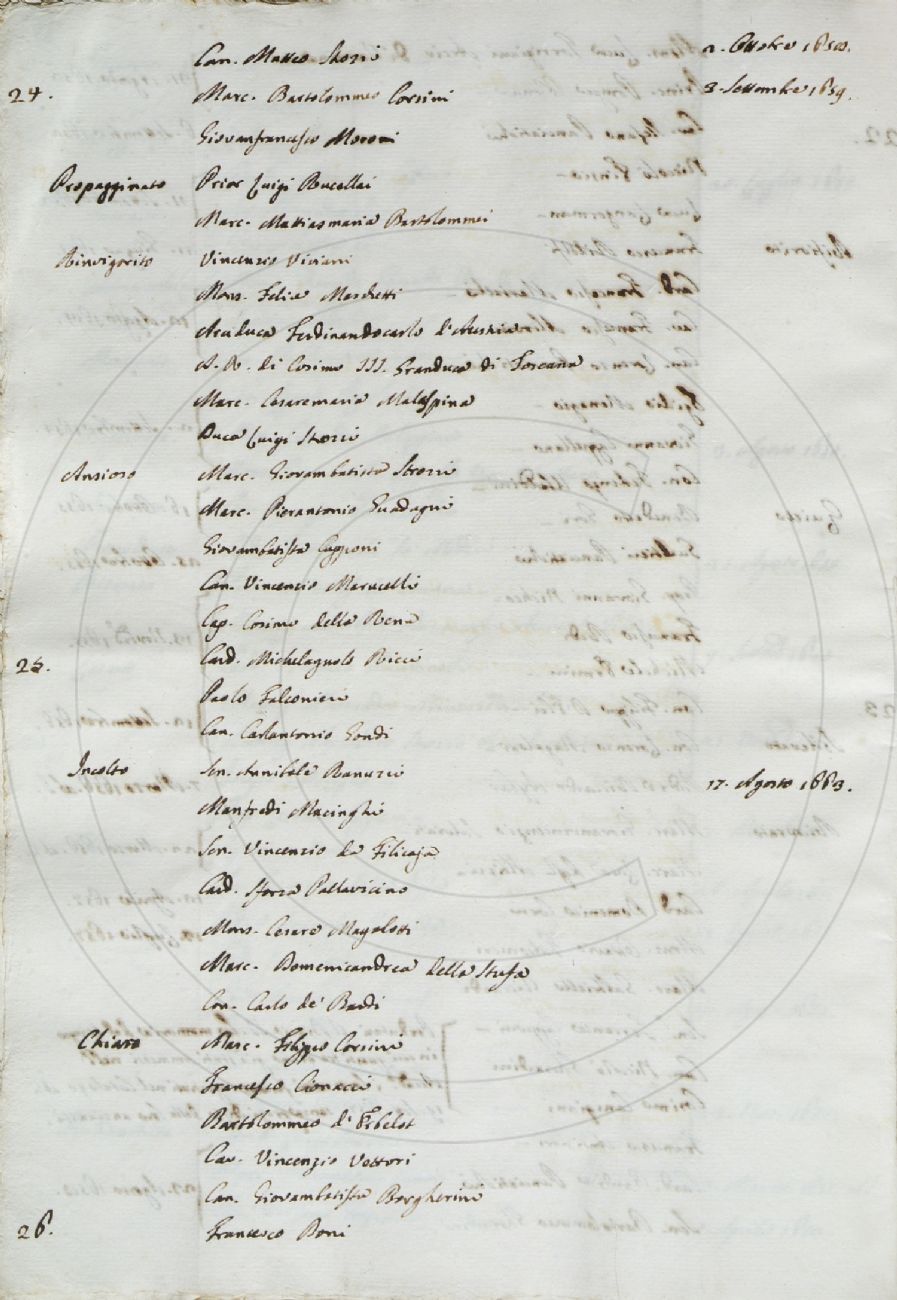 Can. Matteo Strozzi 2. Ottobre 1650.
24. Marc. Bartolommeo Corsini 3. Settembre 1659.
Giovanfrancesco Morozzi
Propagginato Prior Luigi Rucellai
Marc. Mattiasmaria Bartolommei
Rinvigorito Vincenzio Viviani
Mons. Felice Marchetti
Arciduca Ferdinandocarlo d'Austria
A. R. di Cosimo III. Granduca di Toscana
Marc. Cesaremaria Malaspina
Duca Luigi Strozzi
Ansioso Marc. Giovambatista Strozzi
Marc. Pierantonio Guadagni
Giovambatista Capponi
Can. Vincenzio Marucelli
Cap. Cosimo della Rena
25. Card. Michelagnolo Ricci
Paolo Falconieri
Can. Carlantonio Gondi
Incolto Sen. Annibale Ranuzzi 17. Agosto 1663.
Manfredi Macinghi
Sen. Vincenzio da Filicaja
Card. Sforza Pallavicino
Mons. Cesare Magalotti
Marc. Domenicandrea della Stufa
Con. Carlo de' Bardi
Chiaro Marc. Filippo Corsini
Francesco Cionacci
Bartolommeo d'Erbelot
Cav. Vincenzio Vettori
Can. Giovambatista Borgherini
26. Francesco Boni